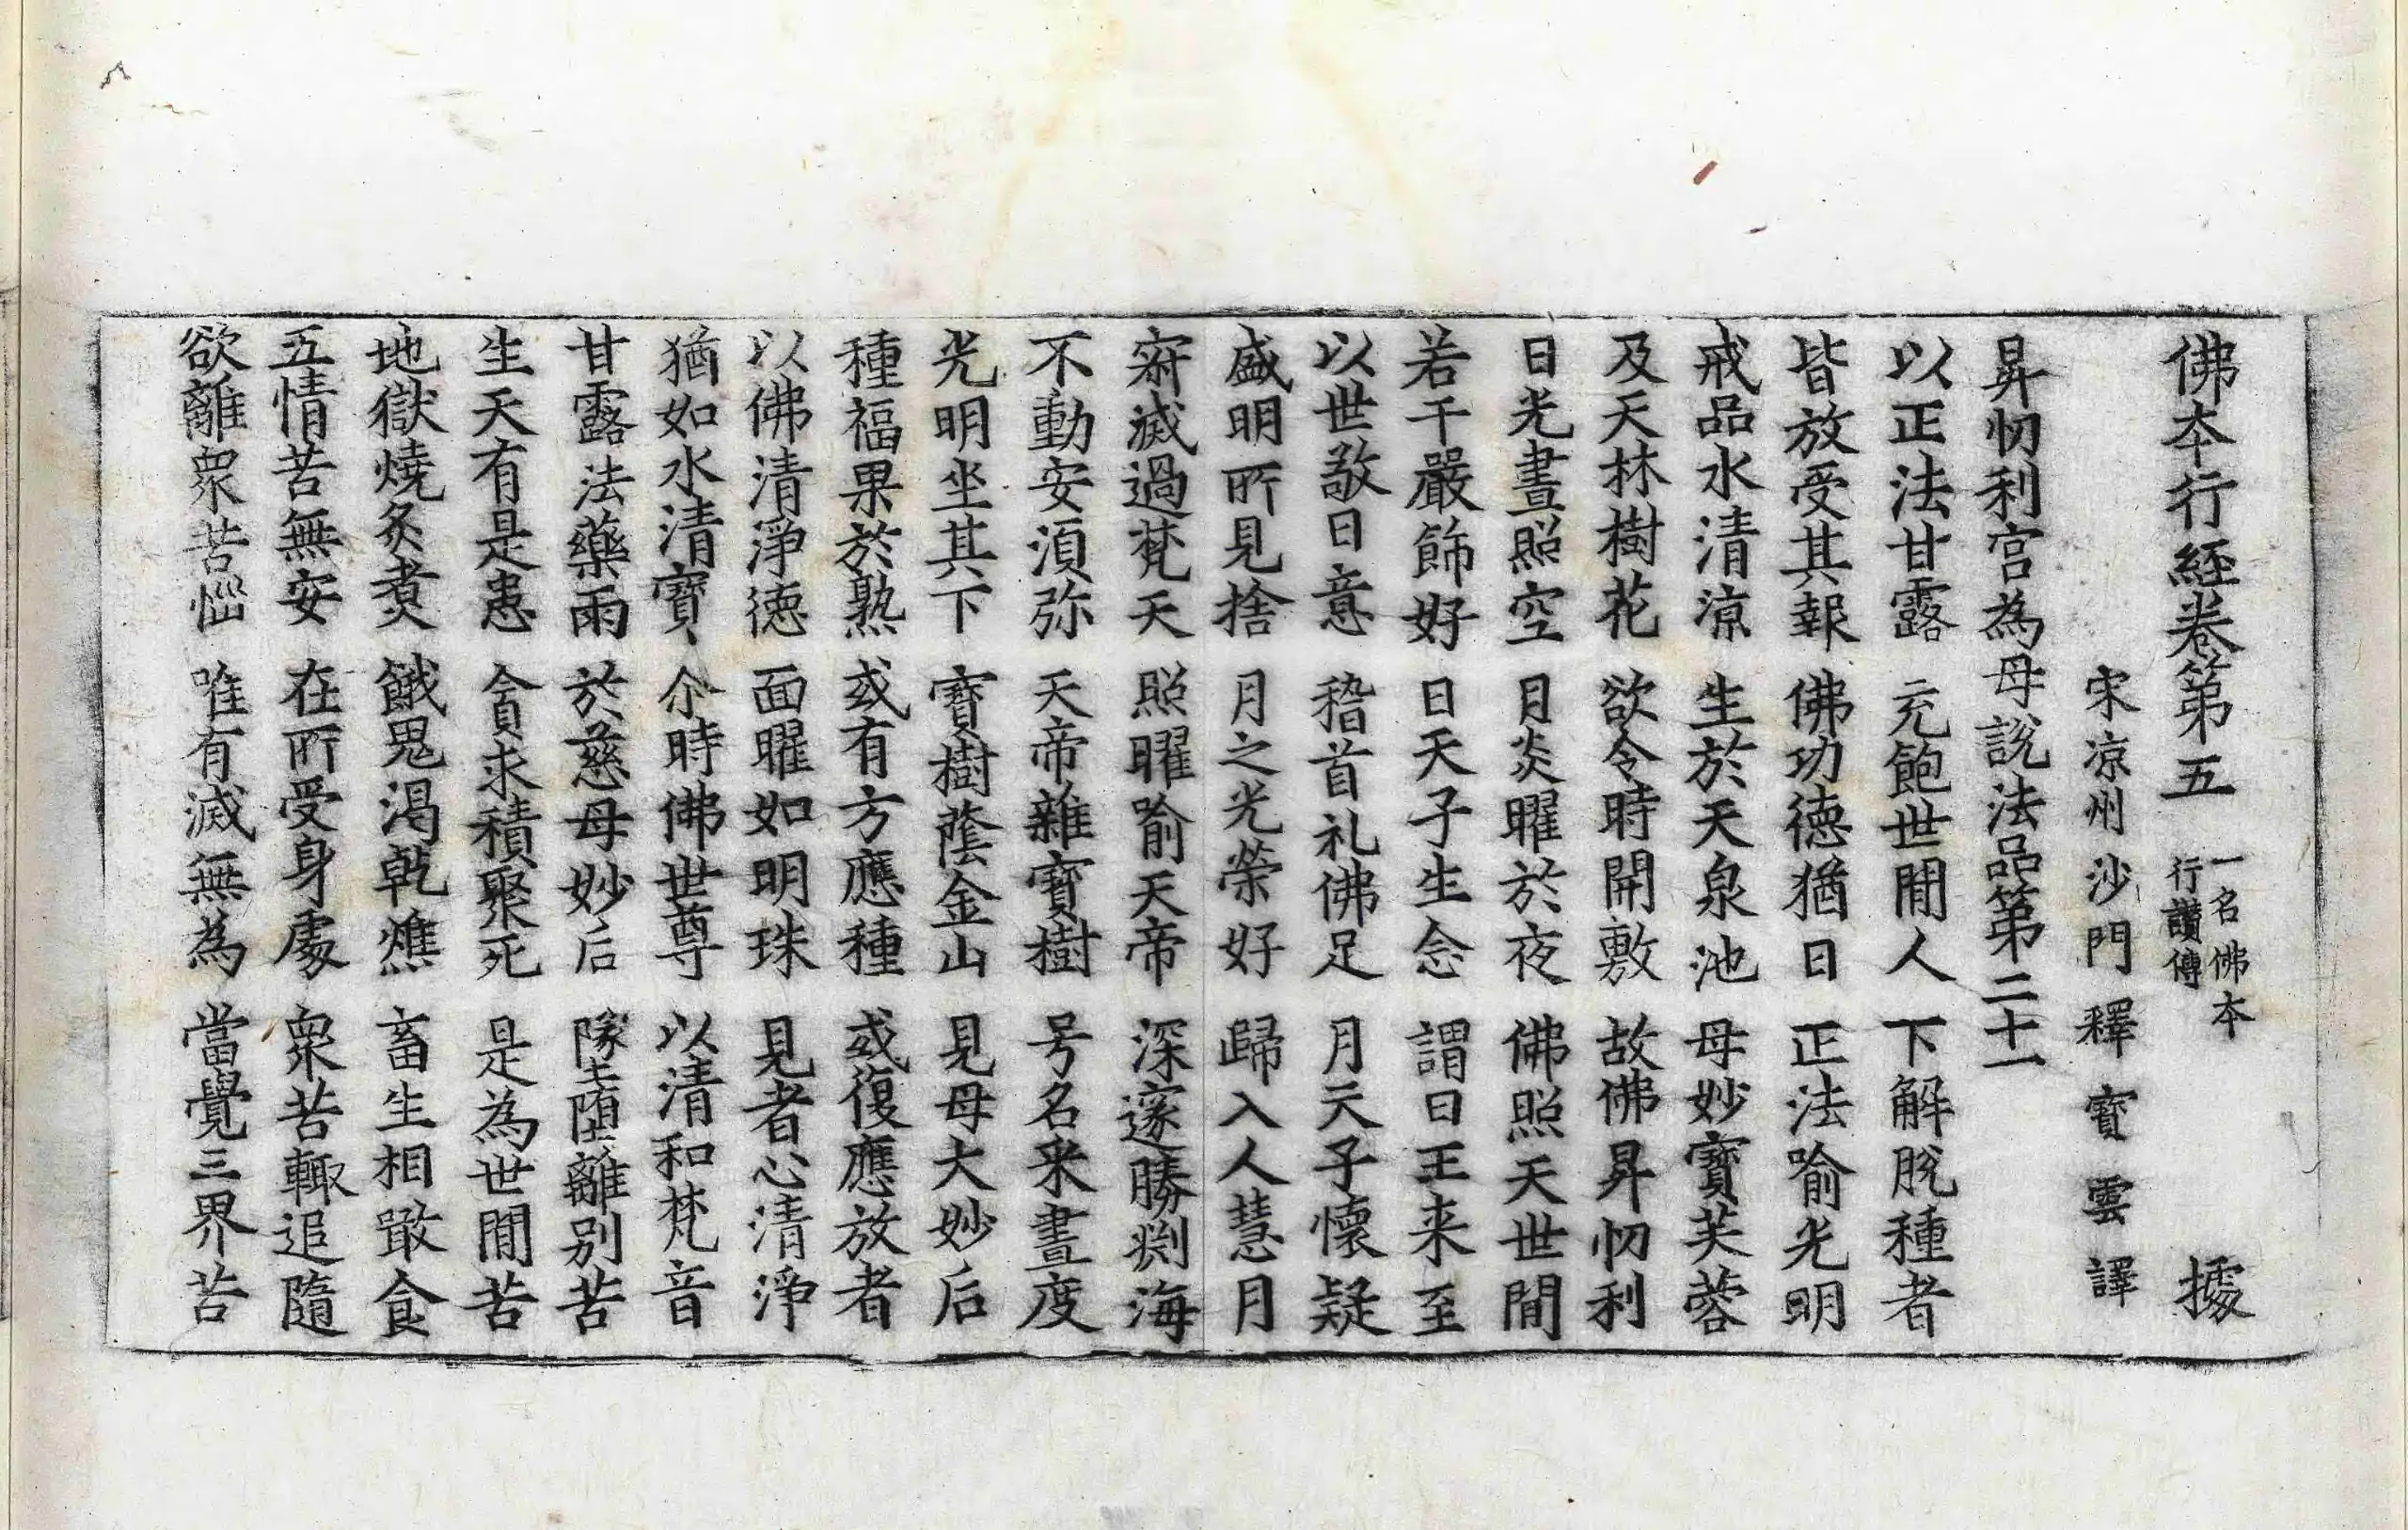 佛夲行經卷第五 一名佛本行讚傳 㩀
宋涼州沙門釋寶雲譯
昇忉利宫為母說法品第二十一
以正法甘露 充飽世閒人 下解脫種者
皆放受其報 佛功德猶日 正法喻光明
戒品水清涼 生於天泉池 母妙寶芙蓉
及天林樹花 欲令時開敷 故佛昇忉利
日光晝照空 月炎曜於夜 佛照天世間
若干嚴飾好 日天子生念 謂日王来至
以世敬日意 稽首礼佛足 月天子懷疑
盛明所見捨 月之光榮好 歸入人慧月
寂滅過梵天 照曜喻天帝 深邃勝渕海
不動安湏弥 天帝雜寶樹 号名来晝度
光明坐其下 寶樹蔭金山 見母大妙后
種福果於熟 或有方應種 或復應放者
以佛清淨德 面曜如明珠 見者心清淨
猶如水清寶 尒時佛世尊 以清和梵音
甘露法藥雨 於慈母妙后 墜墮離別苦
生天有是患 貪求積聚死 是為世閒苦
地獄燒炙煑 餓鬼渴乾燋 畜生相噉食
五情苦無安 在所受身處 衆苦輙追隨
欲離衆苦惱 唯有滅無為 當覺三界苦